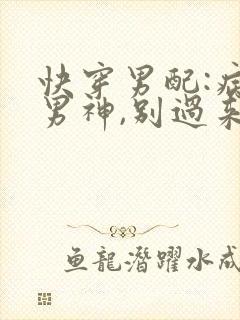 快穿男配:病
男神,别過来
鱼龍潛躍水成